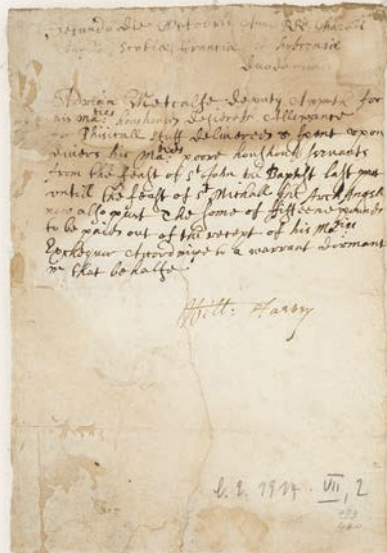 Secundo die Octobris Anno RRs Caroli
Scotia Francia & hybernia
duodecimo
Adrian Metcalfe deputy Appoth for
his Ma:ties houshould desireth Allowance
for Phisicall stuff delivered & spent upon
divers his Ma:ties poore houshould servants
from the feast of St John the Baptist last past
untill the feast of St Michall the Arch Angell
now also past The some of fifteene pounds
to be paied out of the receipt of his Maties
Exchequer Accordinge to a warrant dormant
in that behalfe
Will: Harvey
1914. VII, 2